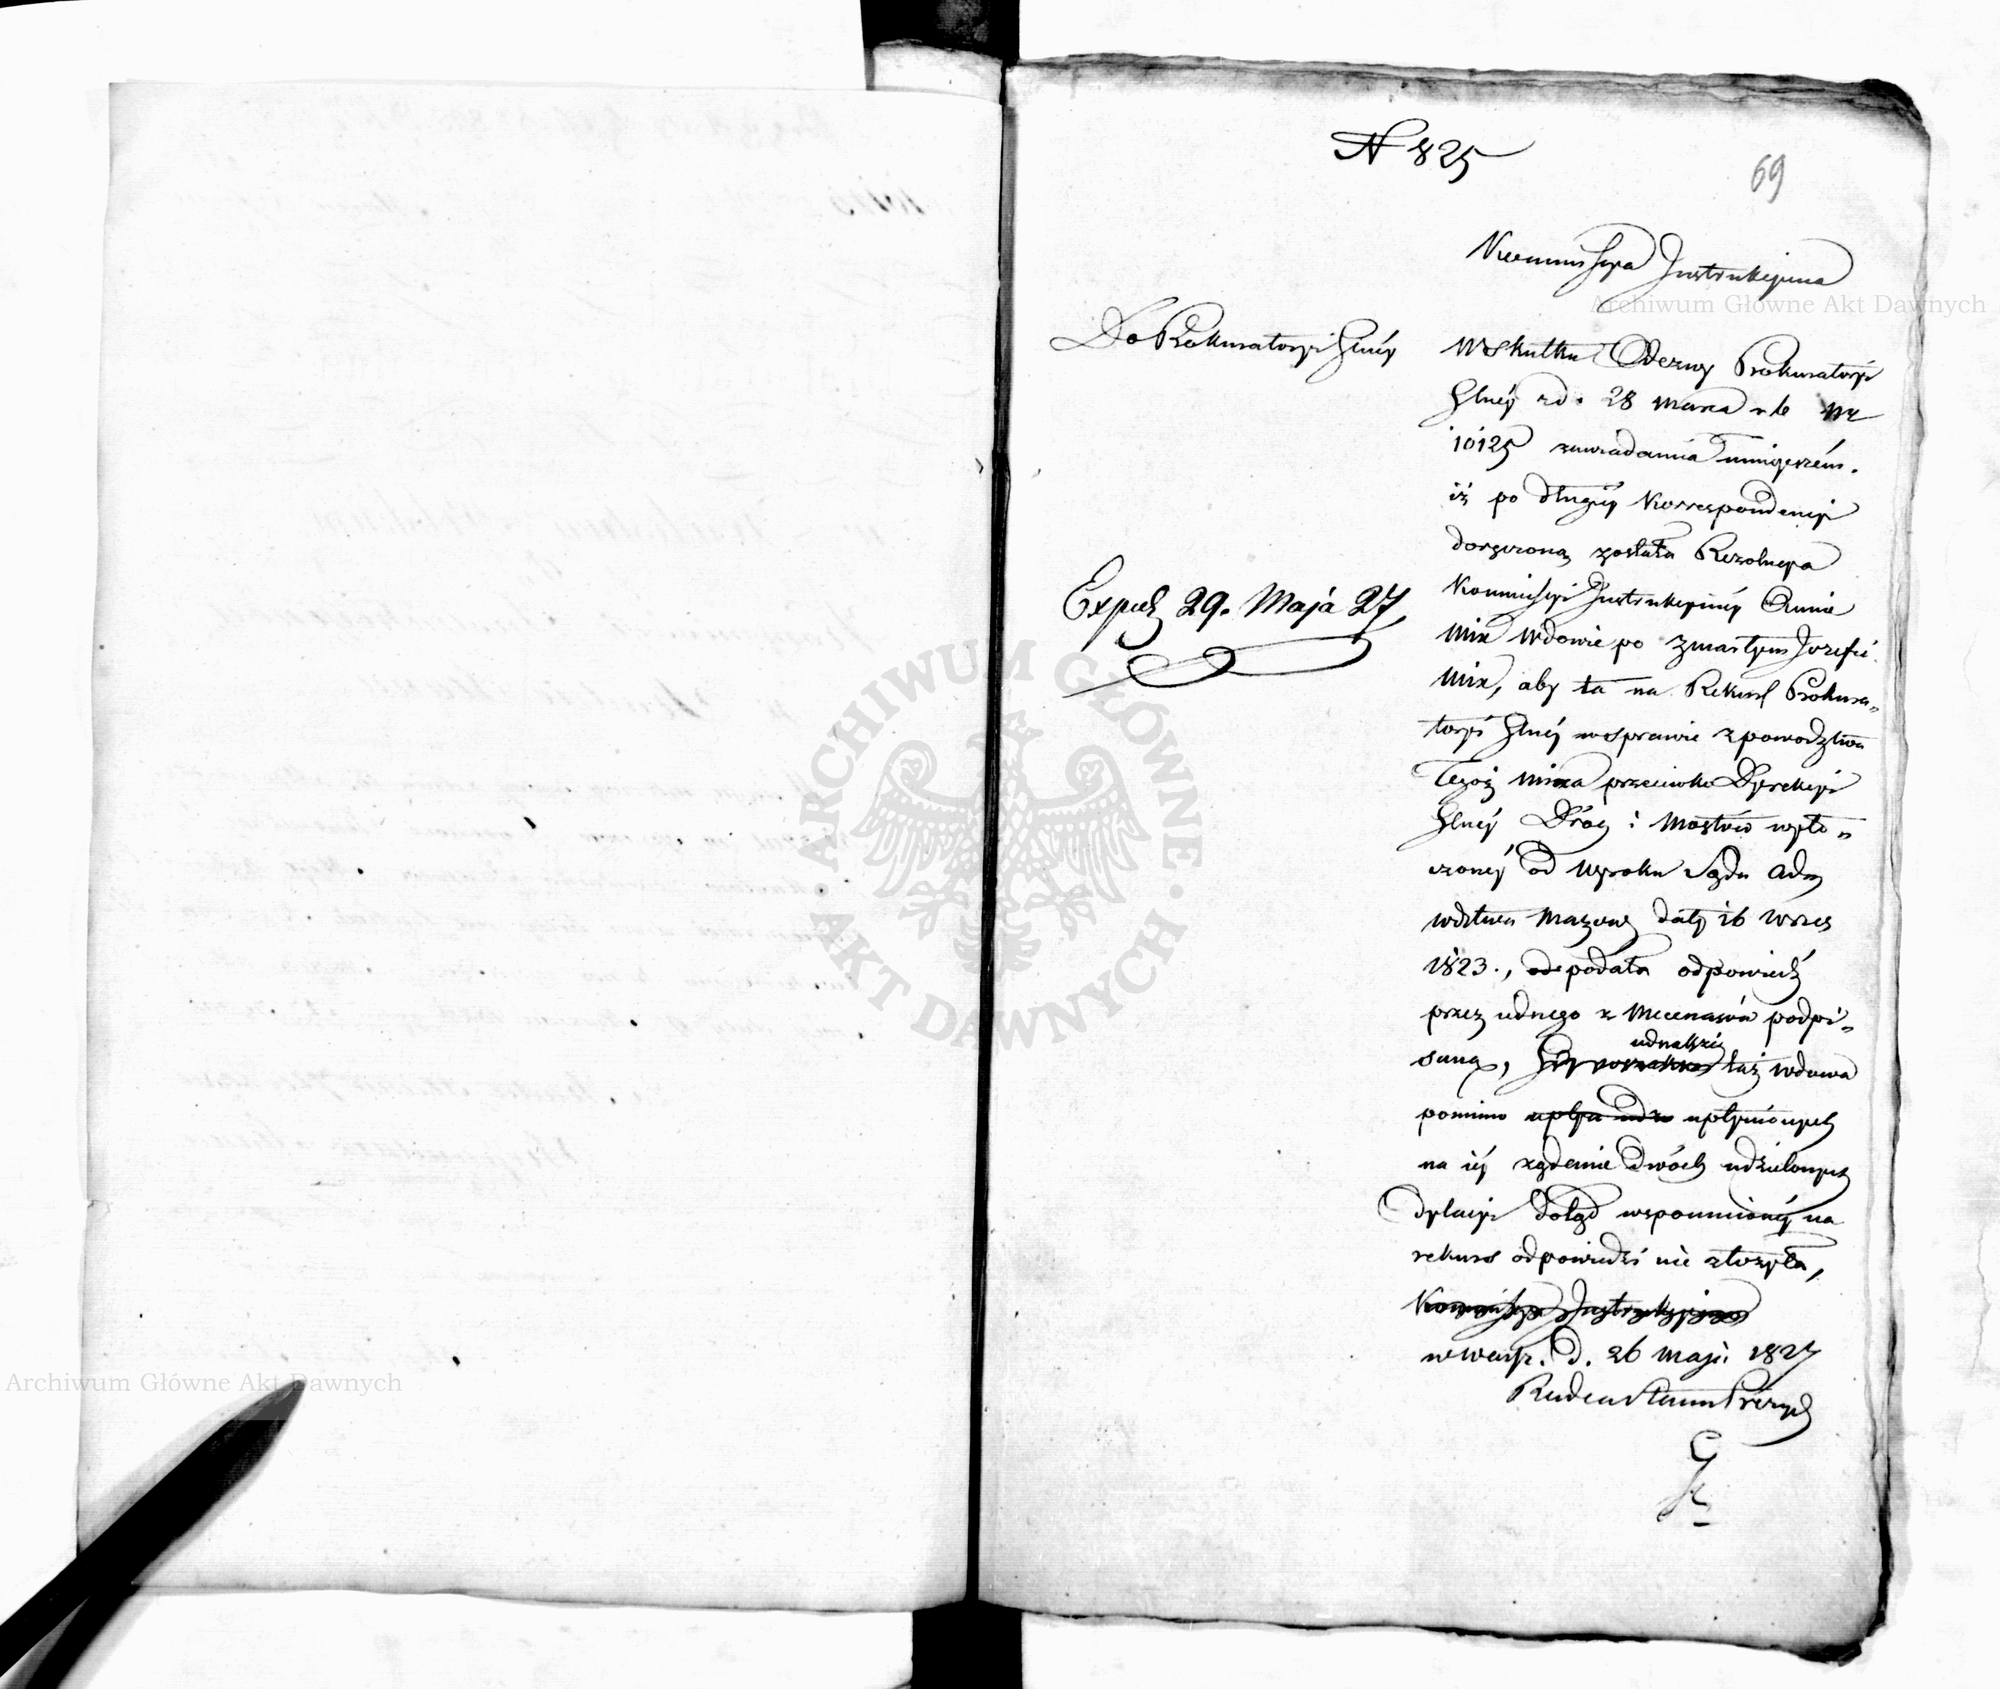 N 825
69
Kommissya Instrukcyina
Do Prokuratoryi Glnéy
W skutku Odezwy Prokuratoryi
Glnéy z d. 28 marca r. b. Nr
10125 zawiadamia ninieyszém.
iż po długiéy Korrespondencyi
doręczoną została Rezolucya
Kommissyi Instrukcyinéy Annie
Mix Wdowie po Zmarłym Jozefie
Mix, aby ta na Rekurs Prokura„
toryi Glnéy w sprawie z powodztwa
Tegoż Mixa przeciwko Dyrekcyi
Glnéy Dróg i Mostów wyto„
czonéy od wyroku Sądu Adm
wdztwa Mazow daty 16 Wrześ
1823., podała odpowiedź
przez iednego z Mecenasów podpi„
saną, iednakże taż wdowa
Expied 29. Maja 27
pomimo upłynionych
na iéy żądanie dwóch udzielonych
dylacyi dotąd wspomnionéy na
rekurs odpowiedzi nie złożyła,
Kommissya Instrukcyina
w Warsz. d. 26 Maja 1827
Radca Stanu Prezyd
ARCHIWUM GŁÓWNE AKT DAWNYCH
Archiwum Główne Akt Dawnych
Archiwum Główne Akt Dawnych